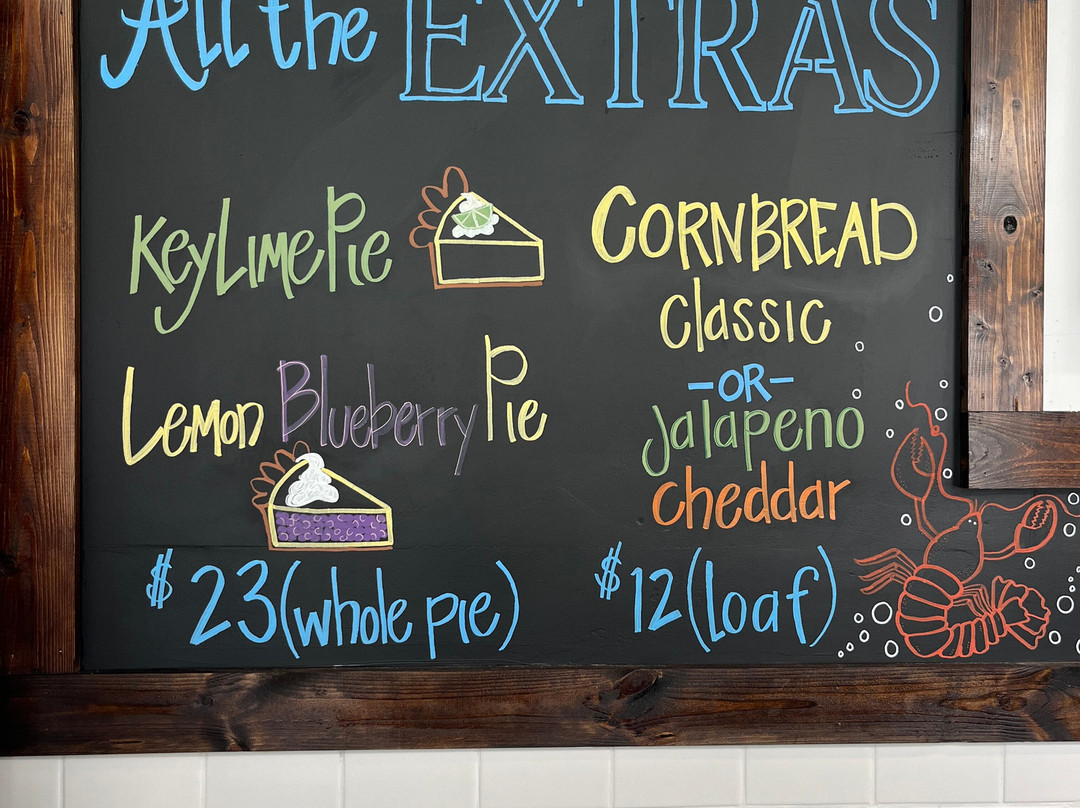 All the EXTRAS
Key Lime Pie
Lemon Blueberry Pie
$23 (whole pie)
CORNBREAD
classic
-OR-
Jalapeno
cheddar
$12 (loaf)